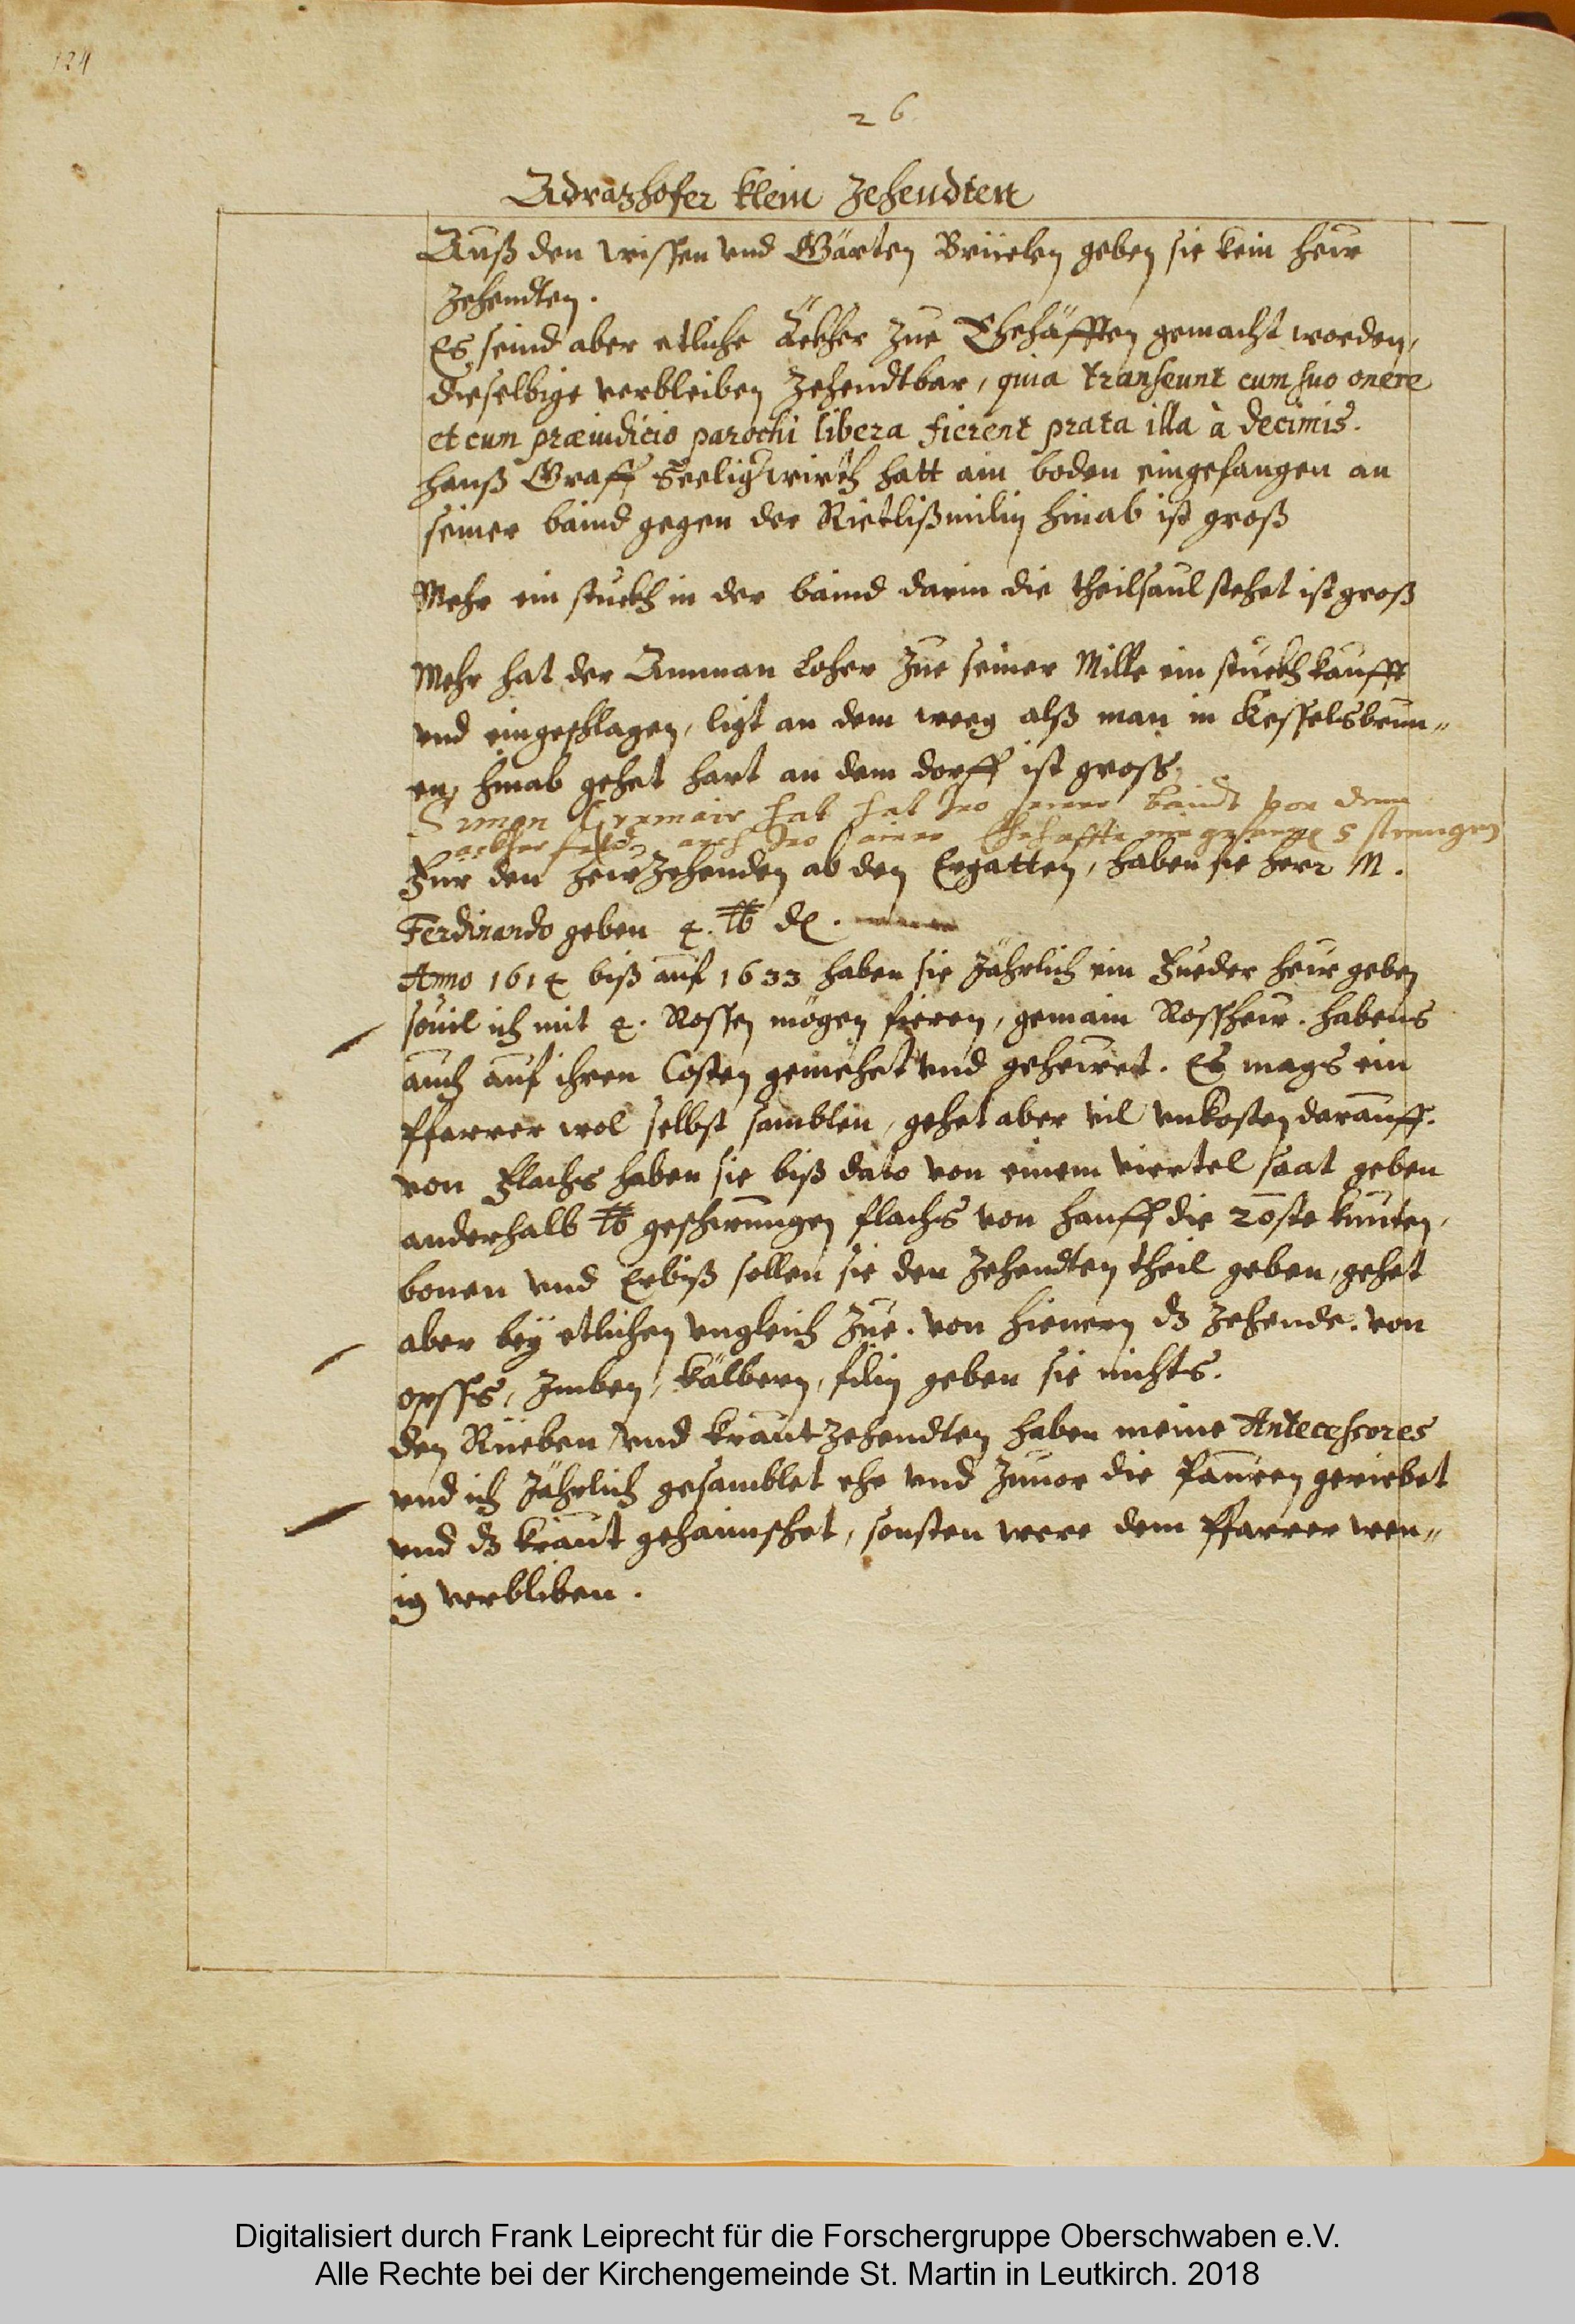 124
26
Adratzhofer klein Zehendten
Auß den wissen und Gärten Brüelen geben sie kein heüw
Zehendten.
Es seind aber etliche Äckher zue Ehehäfften gemacht worden,
dieselbige verbleiben Zehendtbar, quia transeunt cum suo onere
et cum præiudicio parochi libera fierent prata illa à decimis.
Hanß Graff Seelig wirth hatt ain boden eingefangen an
seiner baind gegen der Rietlißmilin hinab ist groß
Mehr ein stuckh in der baind darin die theilsaul stehet ist groß
Mehr hat der Amman Loher zue seiner Mille ein stuckh kaufft
und eingeschlagen, ligt an dem weeg alß man in Kesselsbrun„
en hinab gehet hart an dem dorff ist gross
Simon hat hat zuo seiner baindt vor dem
auch zuo seiner Ehehaffte 5 strengen
Für den heüwZehenden ab den Egatten, haben sie herr M.
Ferdinando geben 4. ℔ dl.
Anno 1614 biß auf 1633 haben sie Jährlich ein Fueder heüw geben
souil ich mit 4. Rossen mögen fieren, gemain Rossheüw. habens
auch auf ihren Costen gemehet und geheüwet. Es mags ein
Pfarrer wol selbst samblen, gehet aber vil unkosten darauff.
von Flachs haben sie biß dato von einem viertel saat geben
anderhalb ℔ geschwungen flachs von hanff die 20ste kauten,
bonen und Erbiß sollen sie den Zehendten theil geben, gehet
aber bey etlichen ungleich Zue. von hienern dz Zehende. von
opss, Imben, kälbern, filin geben sie nichts.
den Rüeben und krautzehendten haben meine Antecessores
und ich Jährlich gesamblet ehe und Zuuor die Pauren geriebet
und dz kraut gehaimschet, sonsten were dem Pfarrer wen„
ig verbliben.
Digitalisiert durch Frank Leiprecht für die Forschergruppe Oberschwaben e.V.
Alle Rechte bei der Kirchengemeinde St. Martin in Leutkirch. 2018